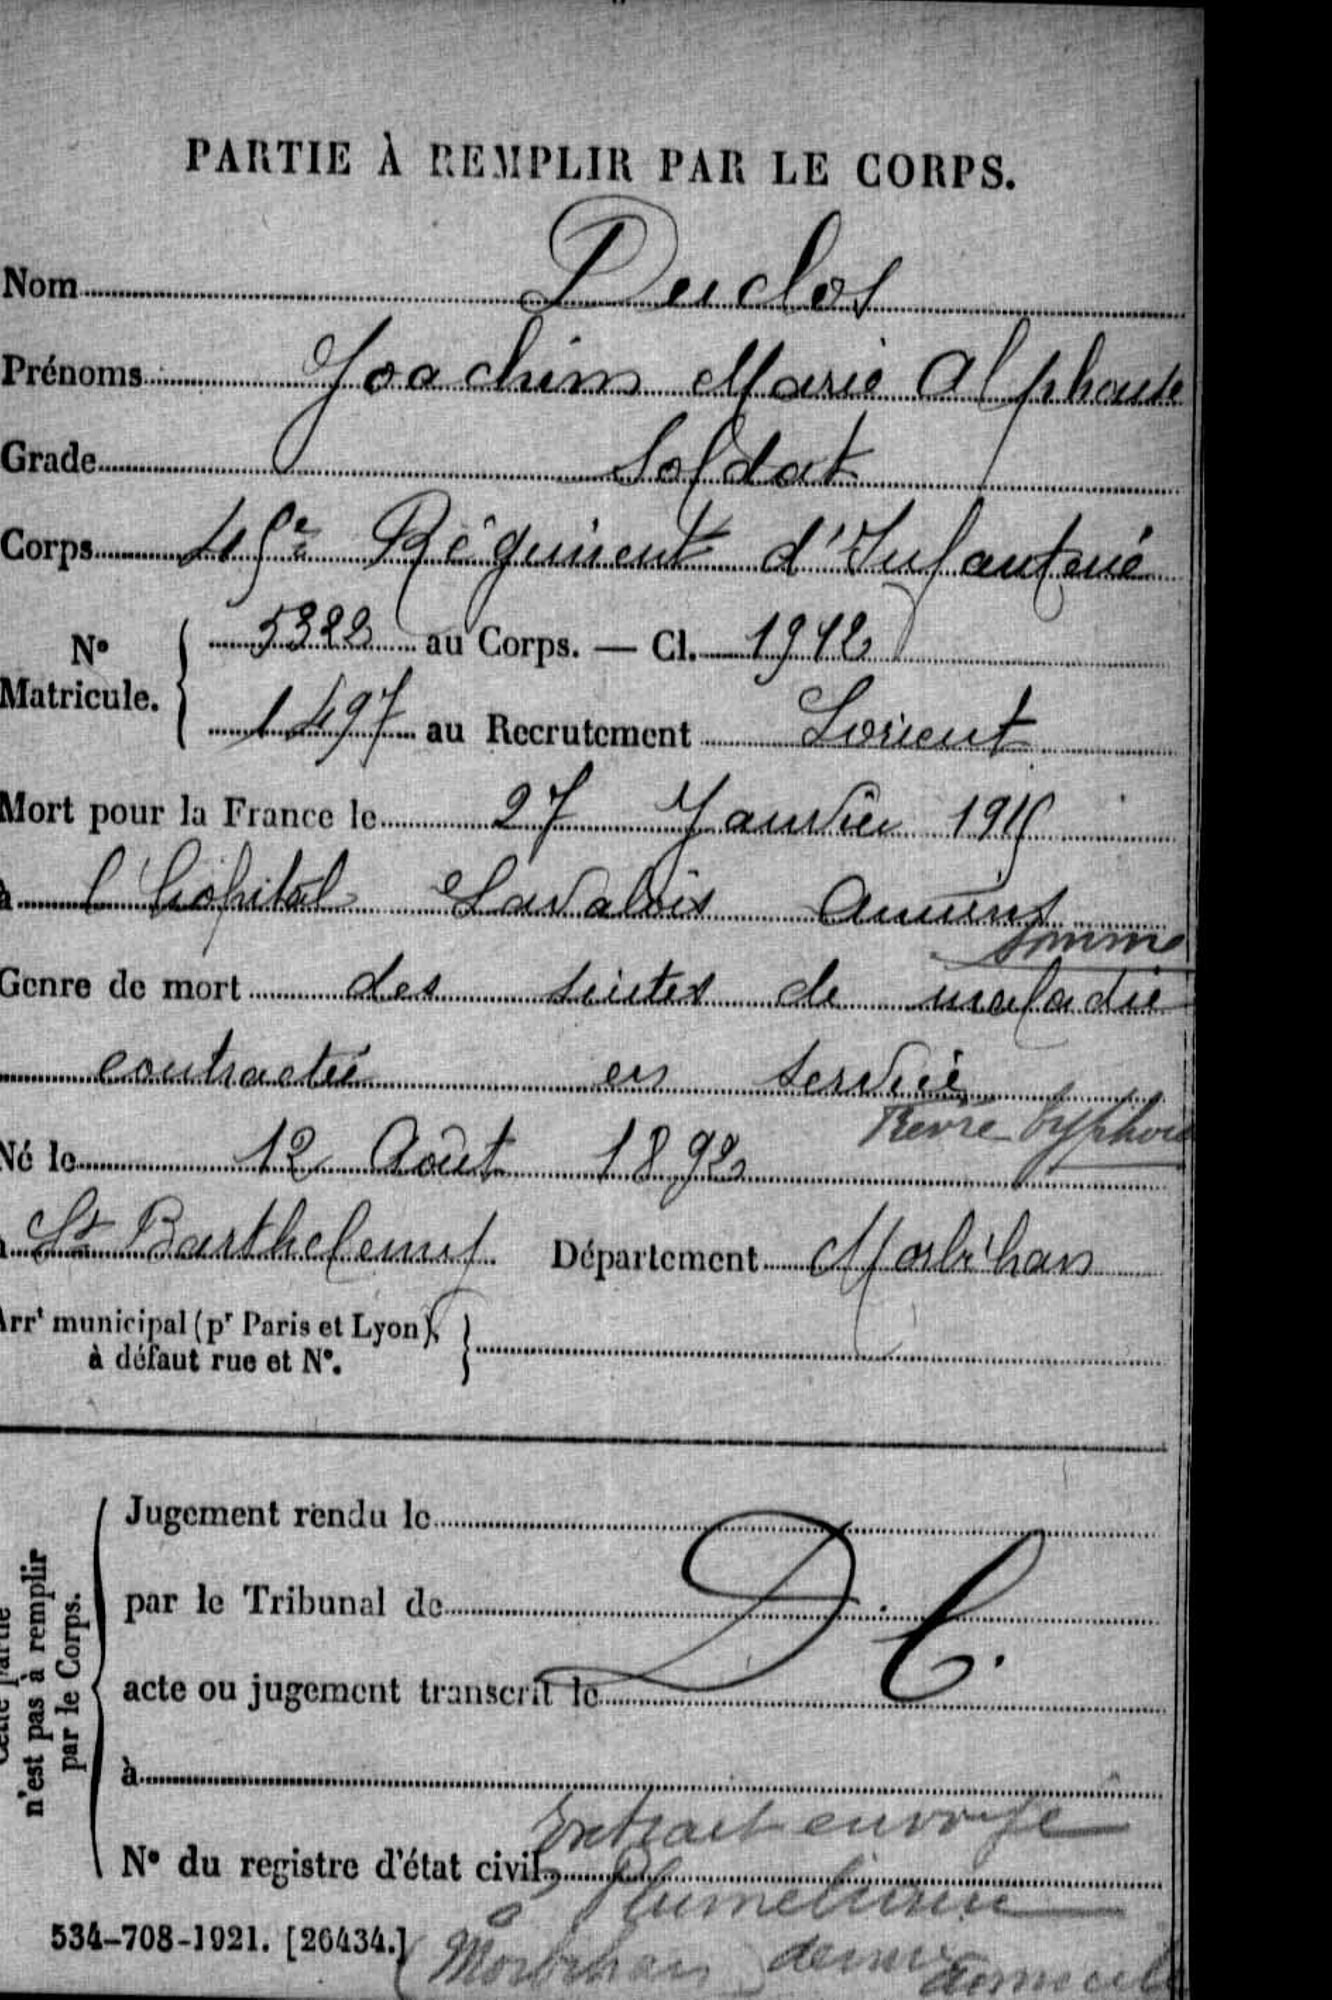 PARTIE À REMPLIR PAR LE CORPS.
Nom Duclos
Prénoms Joachim Marie Alphonse
Grade Soldat
Corps 45e Régiment d'Infanterie
N° Matricule. 5322 au Corps. — Cl. 1912
1497 au Recrutement Lorient
Mort pour la France le 27 Janvier 1915
à l'hôpital Amiens
Somme
Genre de mort des suites de maladie
contractée en service
Fievre typhoide
Né le 12 Août 1892
à St Barthelemy Département Morbihan
Arrt municipal (pr Paris et Lyon),
à défaut rue et N°.
Cette partie
n'est pas à remplir
par le Corps.
Jugement rendu le
par le Tribunal de
D.C.
acte ou jugement transcrit le
à
Extrait envoyé
N° du registre d'état civil
à Plumeliau
534-708-1921. [26434.]
(Morbihan) domicile